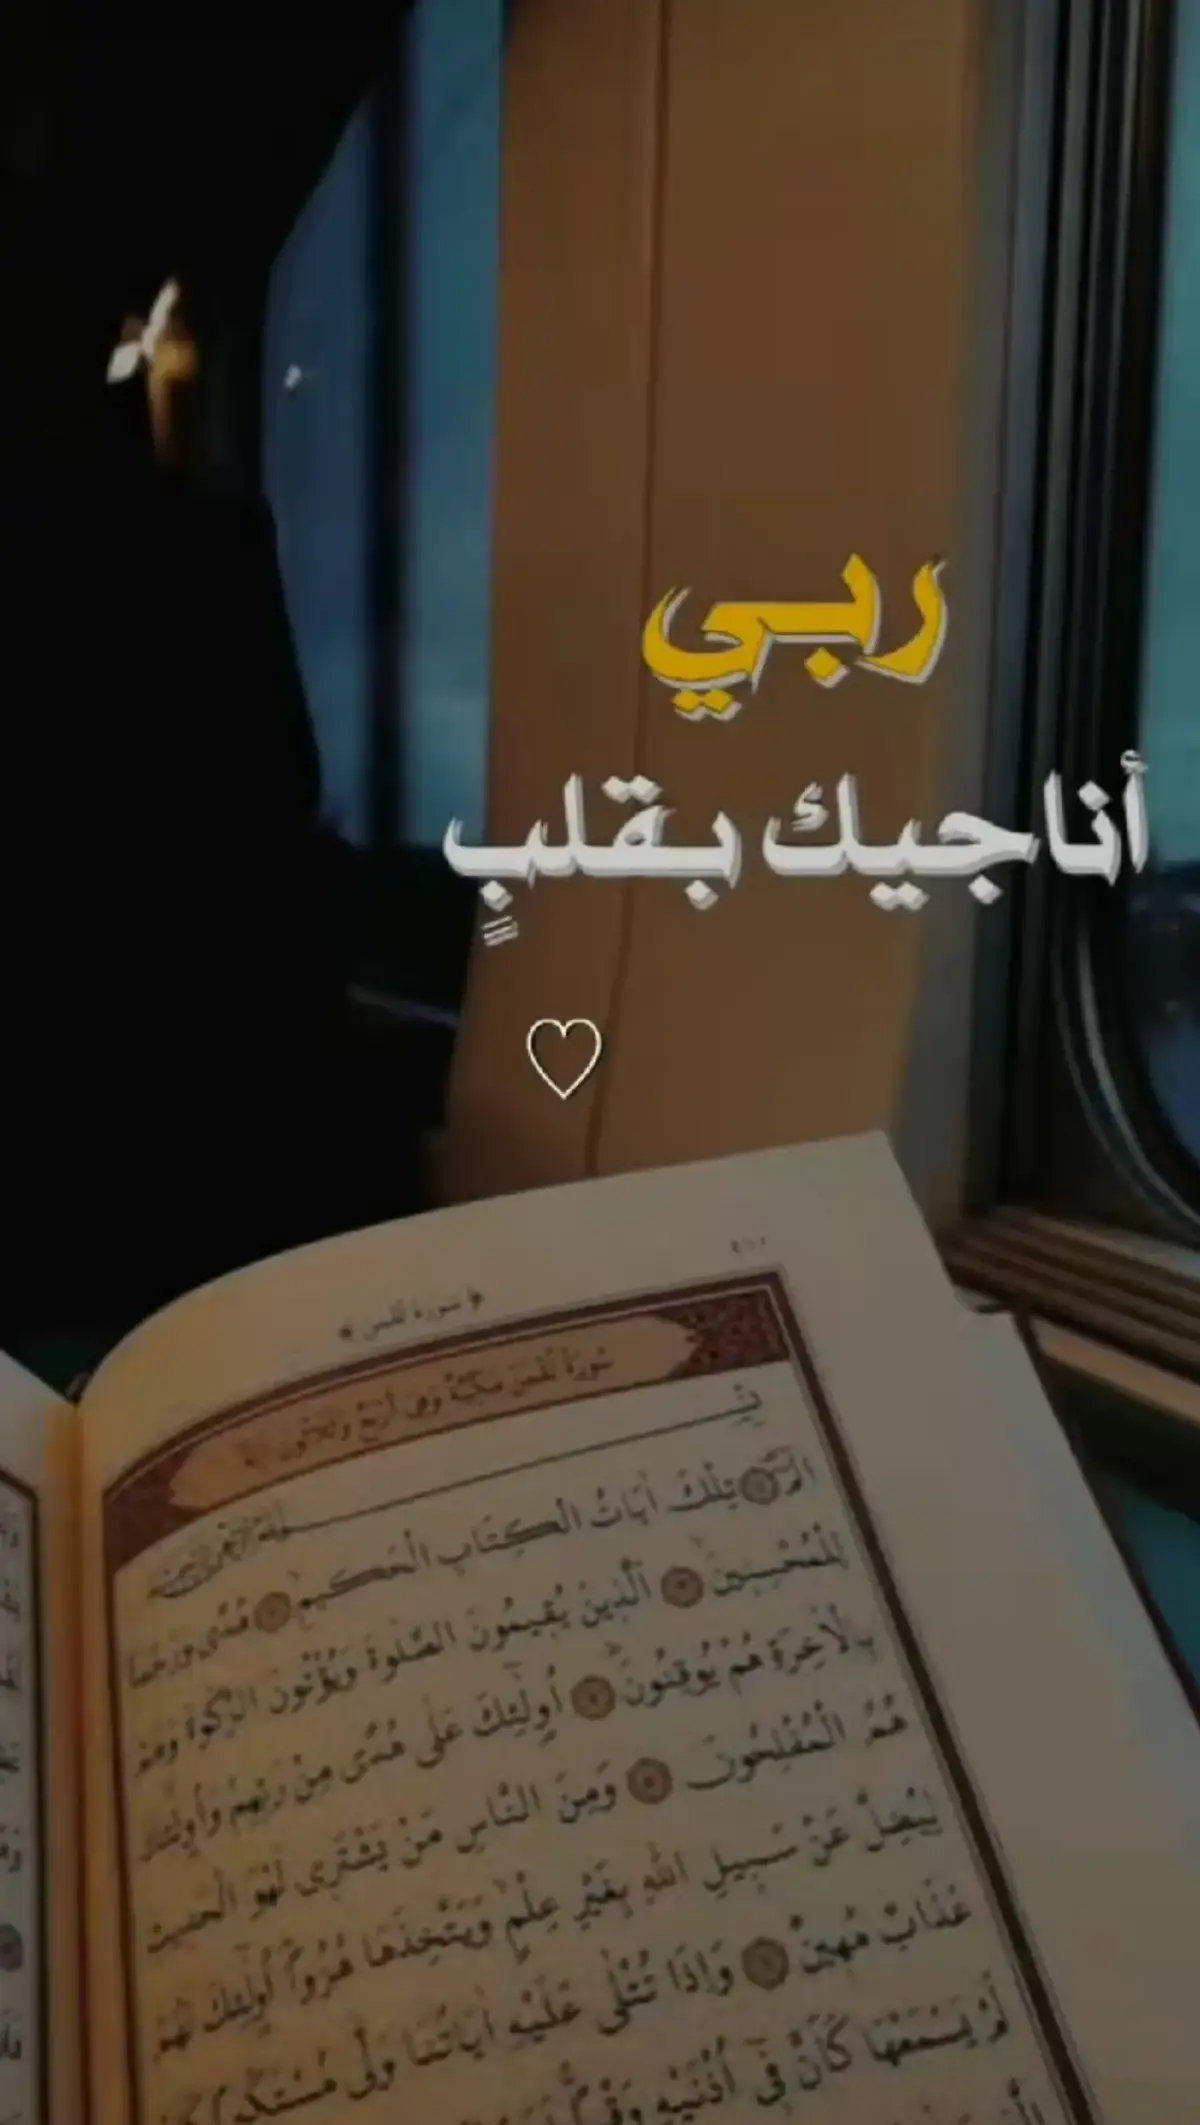 ربي
أناجيك بقلبٍ
♡
﴿ سورة لقمن ﴾
سُورَةُ لُقْمٰنَ مَكِّيَّةٌ وَهِيَ أَرْبَعٌ وَثَلَاثُونَ
الٓمٓ تِلْكَ اٰيَاتُ الْكِتَابِ الْحَكِيمِ هُدًى وَرَحْمَةً
لِلْمُحْسِنِينَ اَلَّذِينَ يُقِيمُونَ الصَّلٰوةَ وَيُؤْتُونَ الزَّكٰوةَ وَهُمْ
بِالْاٰخِرَةِ هُمْ يُوقِنُونَ أُولٰٓئِكَ عَلٰى هُدًى مِنْ رَبِّهِمْ وَأُولٰٓئِكَ
هُمُ الْمُفْلِحُونَ وَمِنَ النَّاسِ مَنْ يَشْتَرِى لَهْوَ الْحَدِيثِ
لِيُضِلَّ عَنْ سَبِيلِ اللهِ بِغَيْرِ عِلْمٍ وَيَتَّخِذَهَا هُزُوًا أُولٰٓئِكَ لَهُمْ
عَذَابٌ مُهِينٌ وَإِذَا تُتْلٰى عَلَيْهِ اٰيَاتُنَا وَلّٰى مُسْتَكْبِرًا
لَمْ يَسْمَعْهَا كَأَنَّ فِىٓ أُذُنَيْهِ